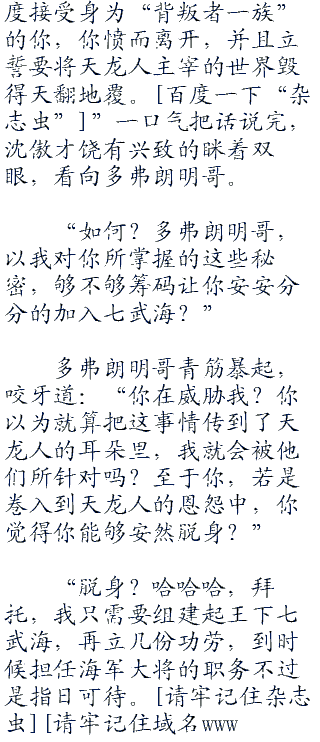 度接受身为“背叛者一族”
的你，你愤而离开，并且立
誓要将天龙人主宰的世界毁
得天翻地覆。[百度一下“杂
志虫”]”一口气把话说完，
沈傲才饶有兴致的眯着双
眼，看向多弗朗明哥。
“如何？多弗朗明哥，
以我对你所掌握的这些秘
密，够不够筹码让你安安分
分的加入七武海？”
多弗朗明哥青筋暴起，
咬牙道：“你在威胁我？你
以为就算把这事情传到了天
龙人的耳朵里，我就会被他
们所针对吗？至于你，若是
卷入到天龙人的恩怨中，你
觉得你能够安然脱身？”
“脱身？哈哈哈，拜
托，我只需要组建起王下七
武海，再立几份功劳，到时
候担任海军大将的职务不过
是指日可待。[请牢记住杂志
虫][请牢记住域名www